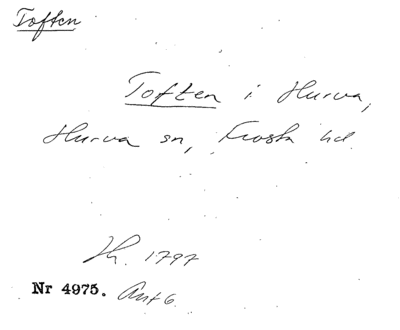 Toften
Toften i Hurva,
Hurva sn, Frosta hd.
Hr. 1797
Nr 4975. Ant 6